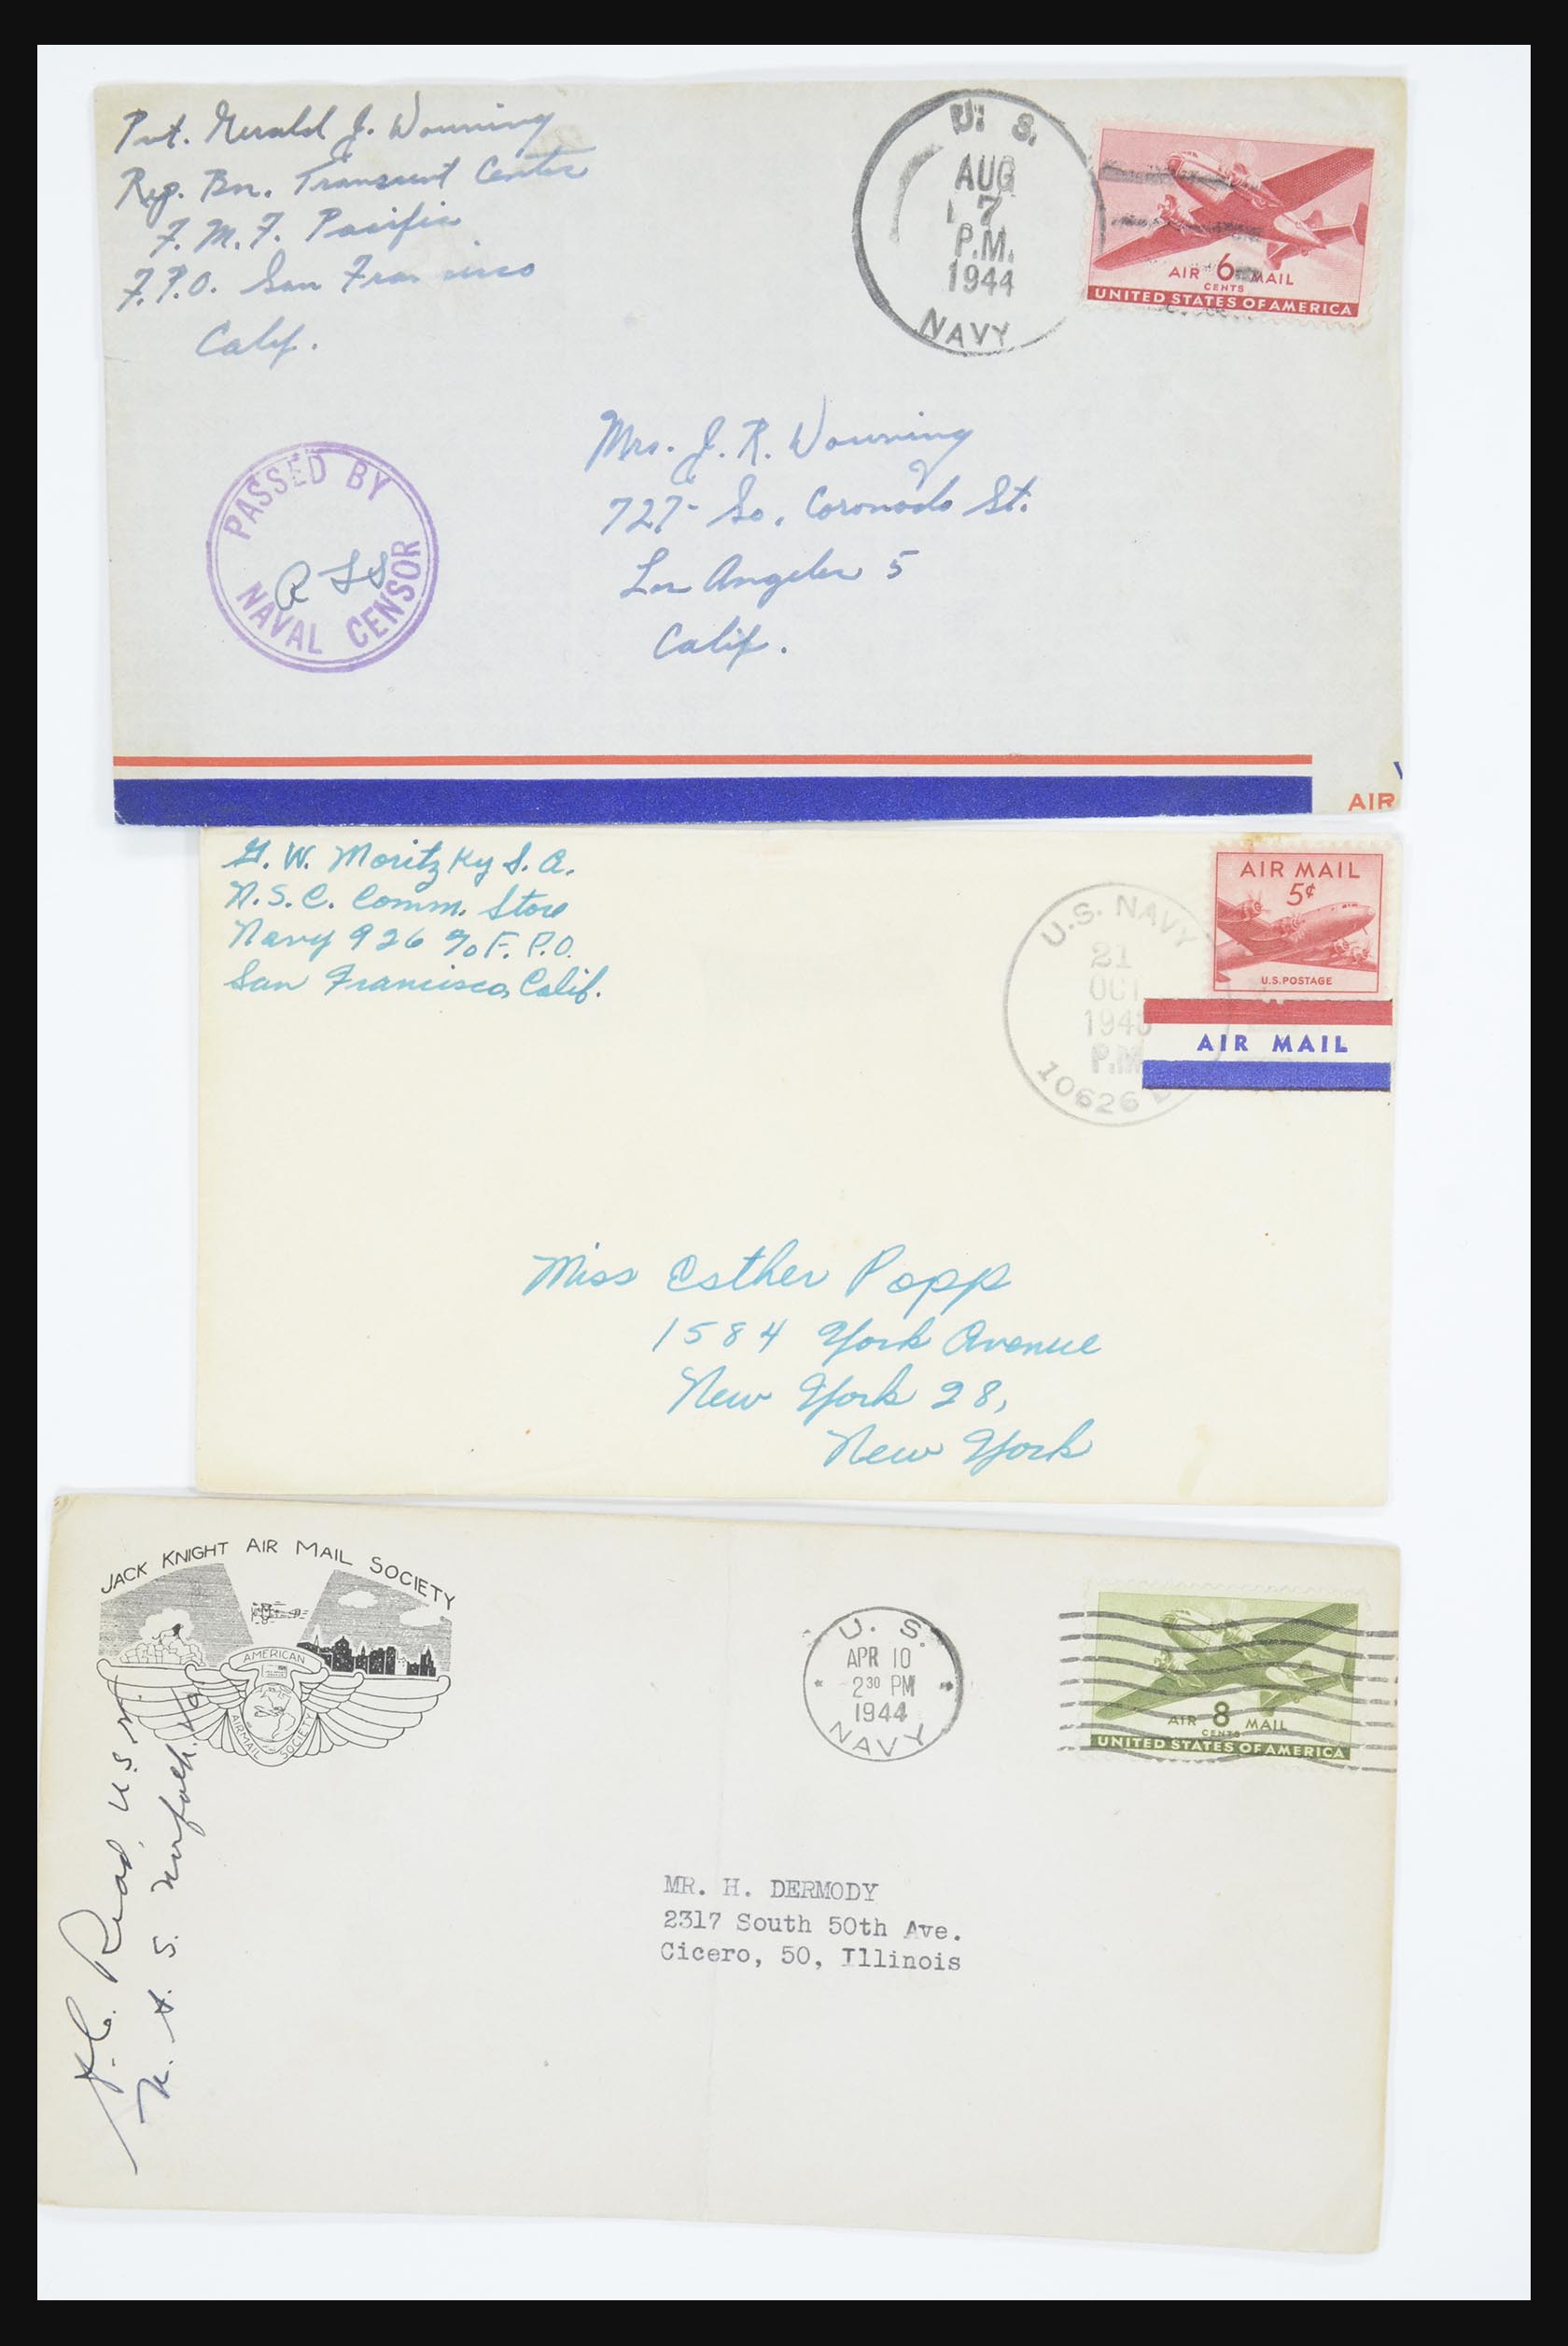 Pvt. Gerald J. Wouning
Rep. Bn. Transient Center
F.M.F. Pacific
F.P.O. San Francisco
Calif.
U. S.
AUG
7
P.M.
1944
NAVY
AIR 6 MAIL
CENTS
UNITED STATES OF AMERICA
PASSED BY
NAVAL CENSOR
Mrs. J. R. Wouning
727- So. Coronado St.
Los Angeles 5
Calif.
AIR
G. W. Moritzky S. A.
N.S.C. Comm. Store
Navy 926 % F.P.O.
San Francisco, Calif.
U.S. NAVY
21
OCT
194
P.M
10626
AIR MAIL
5¢
U.S. POSTAGE
AIR MAIL
Miss Esther Popp
1584 York Avenue
New York 28,
New York
JACK KNIGHT AIR MAIL SOCIETY
AMERICAN
AIRMAIL SOCIETY
U. S.
APR 10
2³⁰ PM
1944
NAVY
AIR 8 MAIL
CENTS
UNITED STATES OF AMERICA
J.C. Read, USN
N. A. S. Norfolk, Va
MR. H. DERMODY
2317 South 50th Ave.
Cicero, 50, Illinois